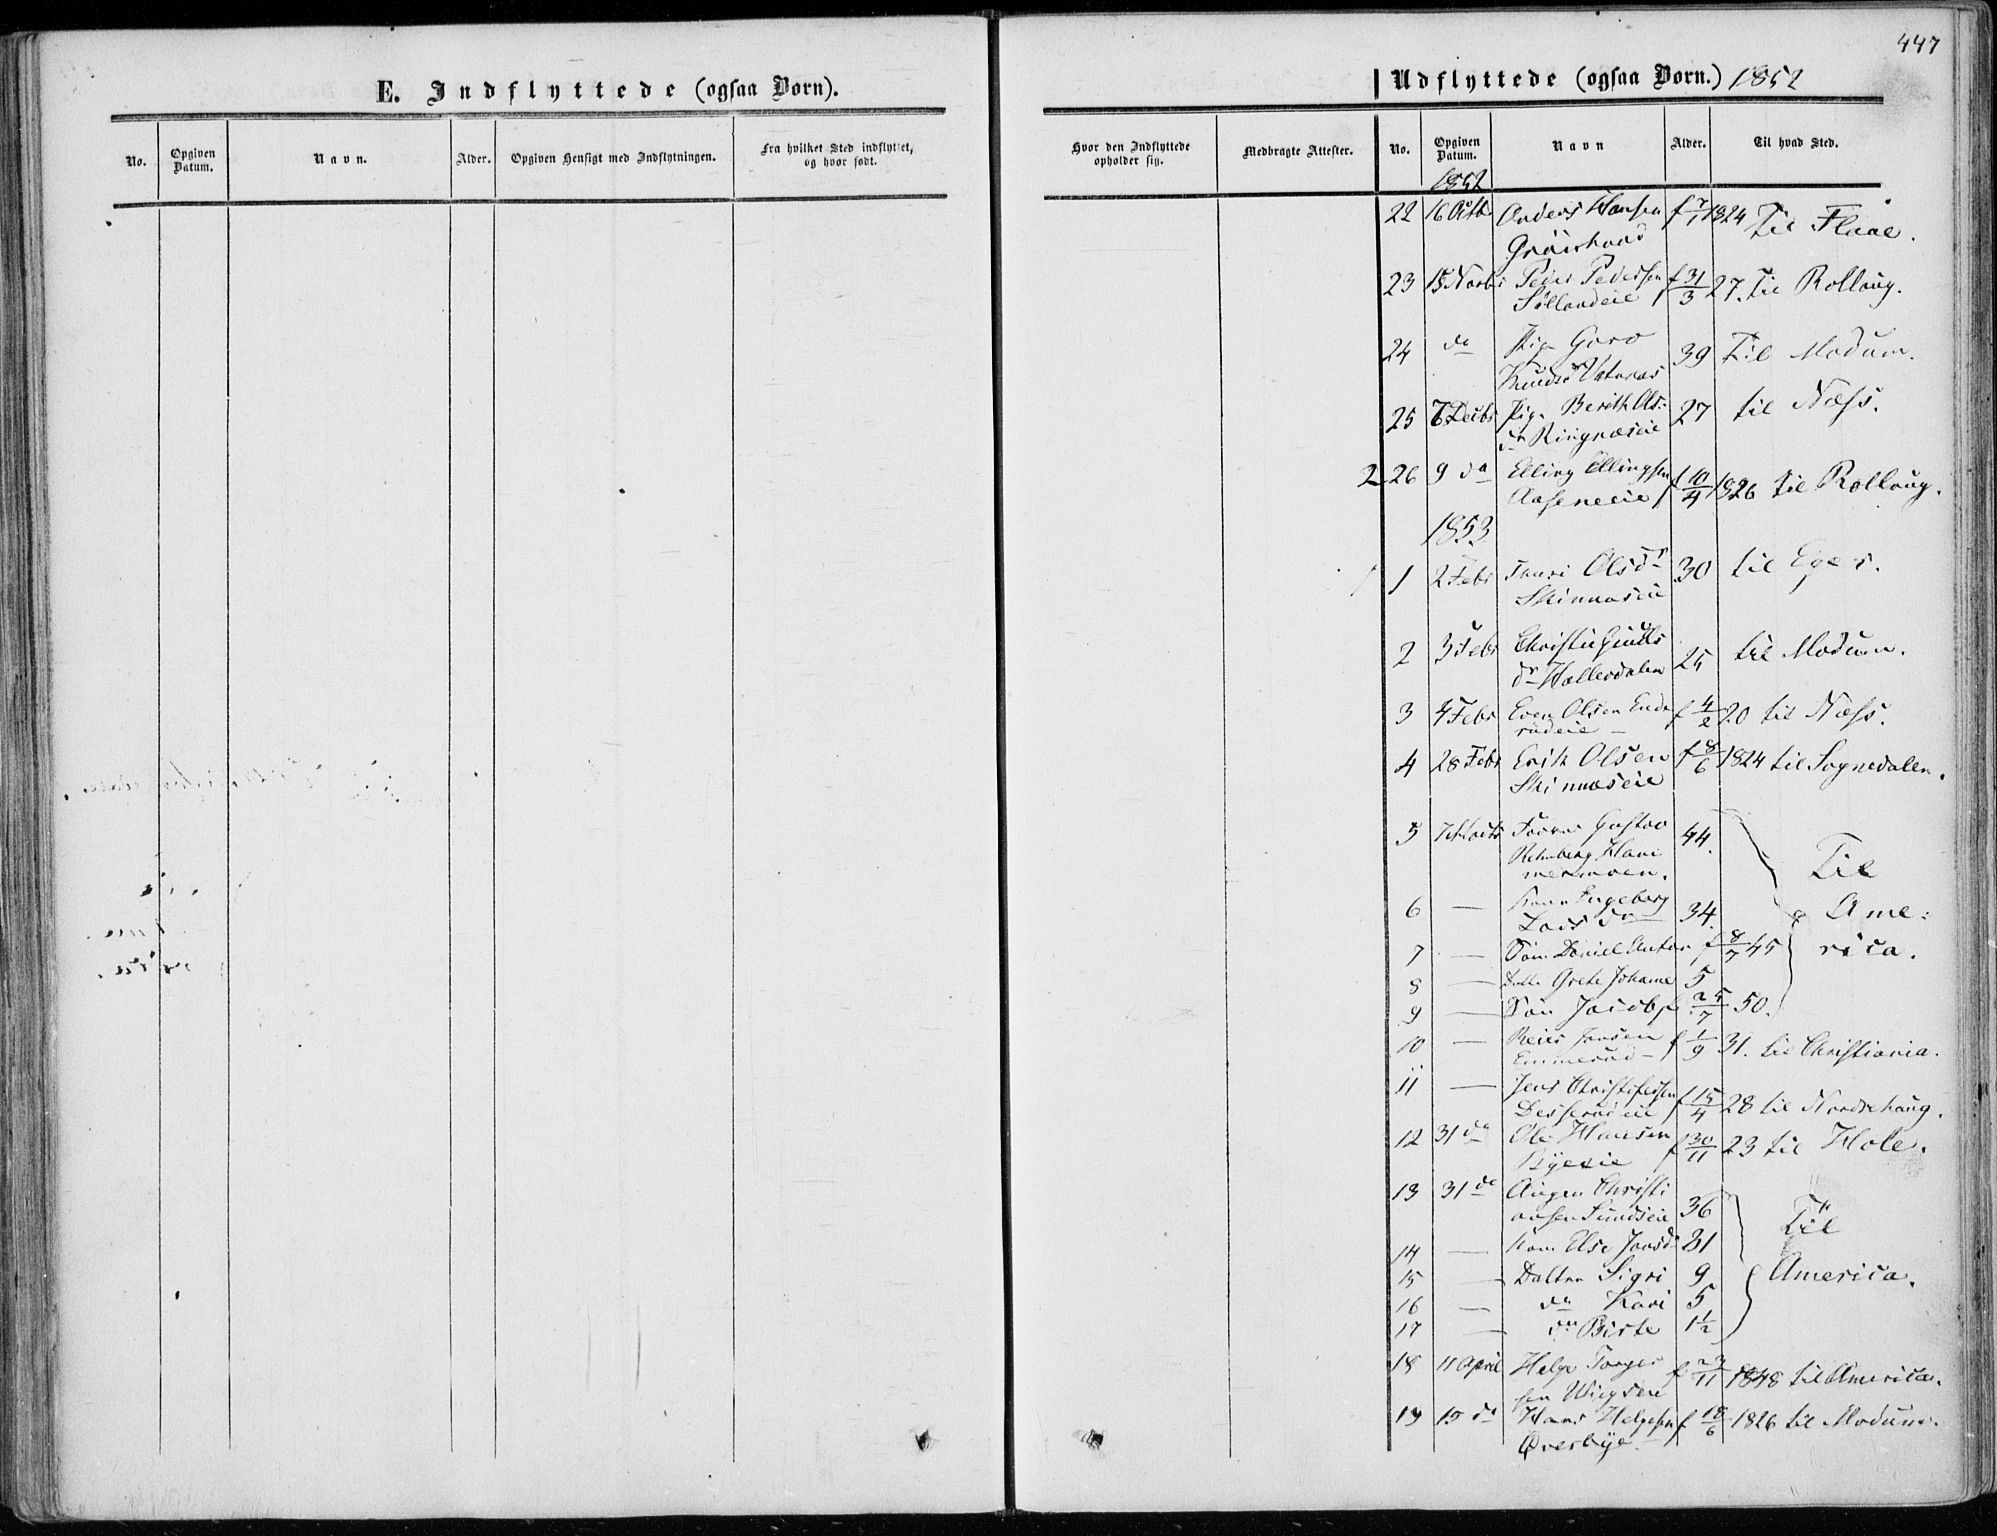 447
E. Indflyttede (ogsaa Børn).
No.
Opgiven Datum.
Navn.
Alder.
Opgiven Hensigt med Indflytningen.
Fra hvilket Sted indflyttet, og hvor født.
Udflyttede (ogsaa Børn.) 1852
Hvor den Indflyttede opholder sig.
Medbragte Attester.
No.
Opgiven Datum.
Navn
Alder.
Til hvad Sted.
1852
22 16 Octb Anders Hansen f 7/1 1824 Til Flaae.
23 15 Novbr Peder Pedersen f 31/3 27. Til Rolloug.
24 do Pig. Goro 39 Til Modum.
Knudsd
25 Decbr Pig. Berith Ols- 27 til Næss.
dr Ringnæseie
2 26 9 do Elling Ellingsen f 10/4 1826 til Rolloug.
Aaseneeie
1853
1 2 Febr Thuri Olsdr 30 til Eger.
Skinnæseie
2 3 Febr Christi 25 til Modum.
dr Hallerdalen
3 4 Febr Even Olsen f 4/2 20 til Næss.
4 28 Febr Erik Olsen f 8/6 1824 til Sognedalen.
Skinnæseie
5 Marts Gustav 44.
Til
6 — Kone Ingeborg 34.
Larsdr
Ame-
7 — Søn Daniel Anton f 8/7 45
rica.
8 — Datter Grete Johanne 5
9 — Søn Jacob f 25/7 50.
10 — Reier Jonsen f 1/9 31. til Christiania.
11 — Jens Christofersen f 15/4 28 til Norderhoug.
12 31 do Ole Hansen f 30/11 23 til Hole.
Byeeie
13 31 do Christi
ansen Sundseie 36
Til
14 — Kone Else 31
15 — Datter Sigri 9
America.
16 — do Kari 5
17 — do Birte 1½
18 11 April Helge Torger f 23/11 1848 til America.
sen
19 15 do Hans Helgesen f 18/6 1826 til Modum.
Øverbye.